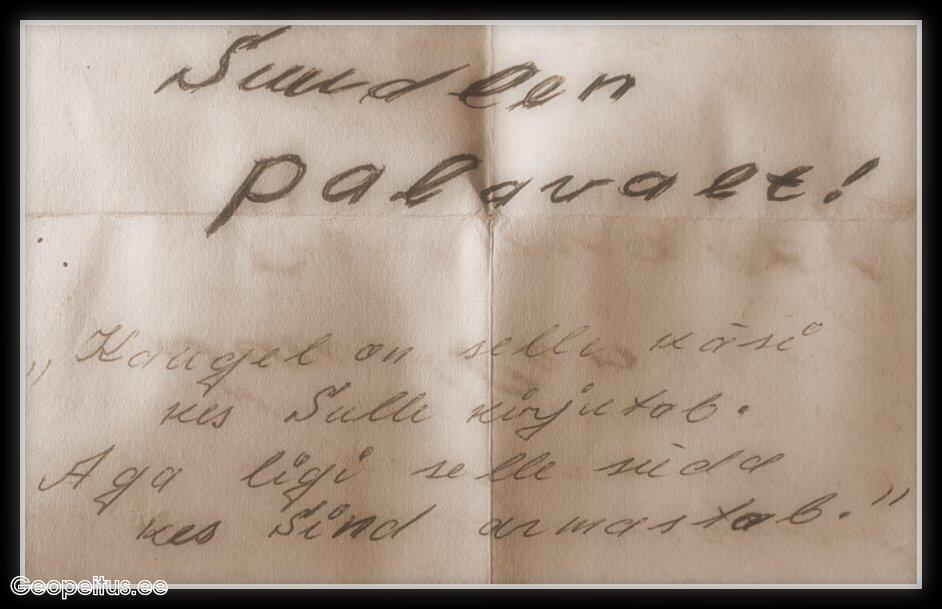 Suudlen
palavalt!
„Kaugel on selle käsi
kes Sulle kirjutab.
Aga ligi selle süda
kes Sind armastab.”
Geopeitus.ee